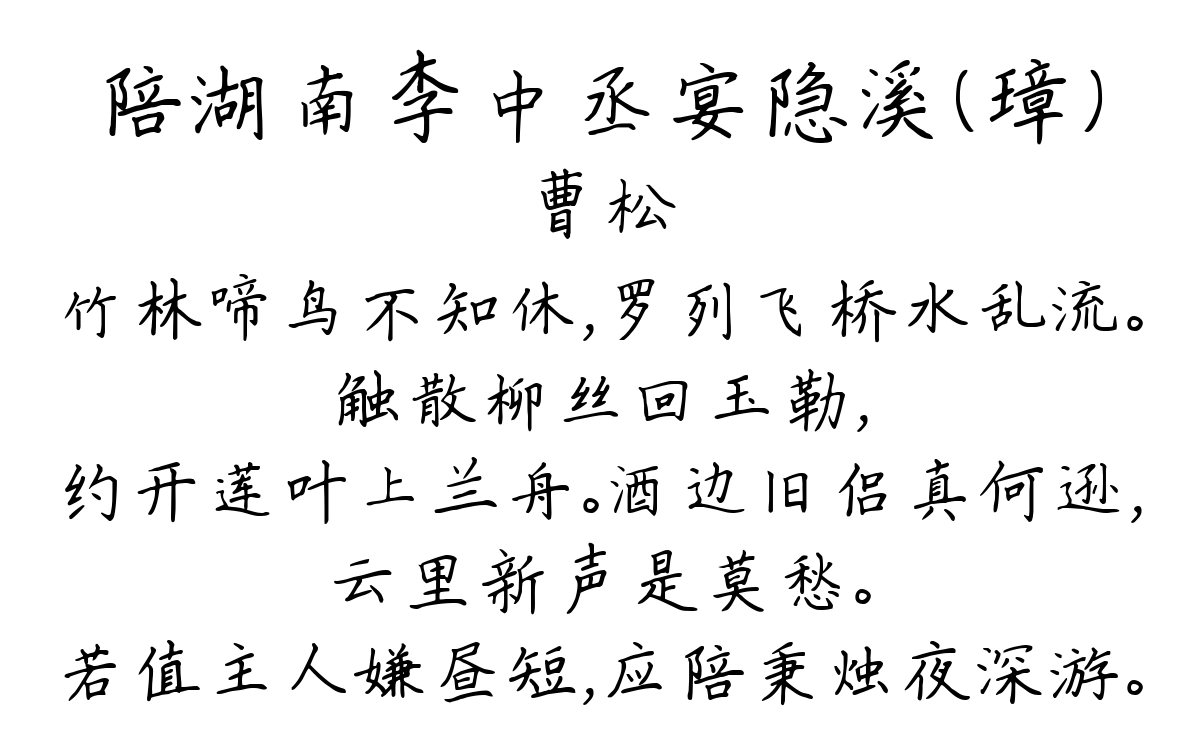 陪湖南李中丞宴隐溪(璋)
曹松
竹林啼鸟不知休,罗列飞桥水乱流。
触散柳丝回玉勒,
约开莲叶上兰舟。酒边旧侣真何逊,
云里新声是莫愁。
若值主人嫌昼短,应陪秉烛夜深游。